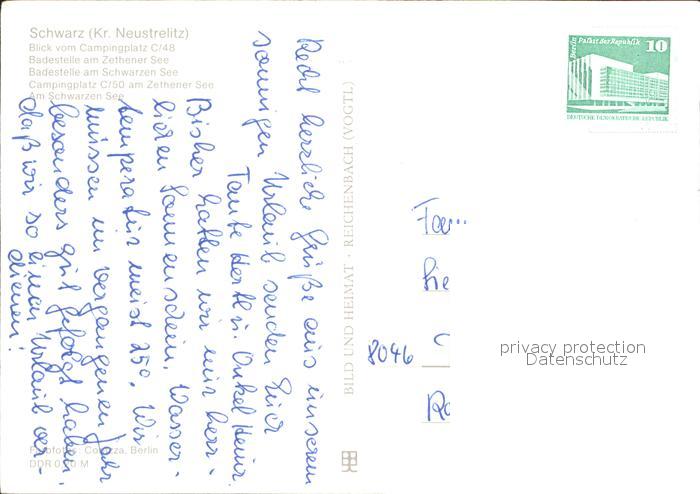 Schwarz (Kr. Neustrelitz)
Blick vom Campingplatz C/48
Badestelle am Zethener See
Badestelle am Schwarzen See
Campingplatz C/50 am Zethener See
Am Schwarzen See
Recht herzliche Grüße aus unserem
sonnigen Urlaub senden Euch
Tante Herta u. Onkel Heinz.
Bisher hatten wir nur herr-
lichen Sonnenschein. Wasser-
temperatur meist 25°. Wir
müssen im vergangenen Jahr
besonders gut gefolgt haben,
daß wir so einen Urlaub ver-
dienen!
Berlin
DDR 0,20 M
BILD UND HEIMAT · REICHENBACH (VOGTL)
Berlin Palast der Republik
10
DEUTSCHE DEMOKRATISCHE REPUBLIK
Fam.
8046
privacy protection
Datenschutz